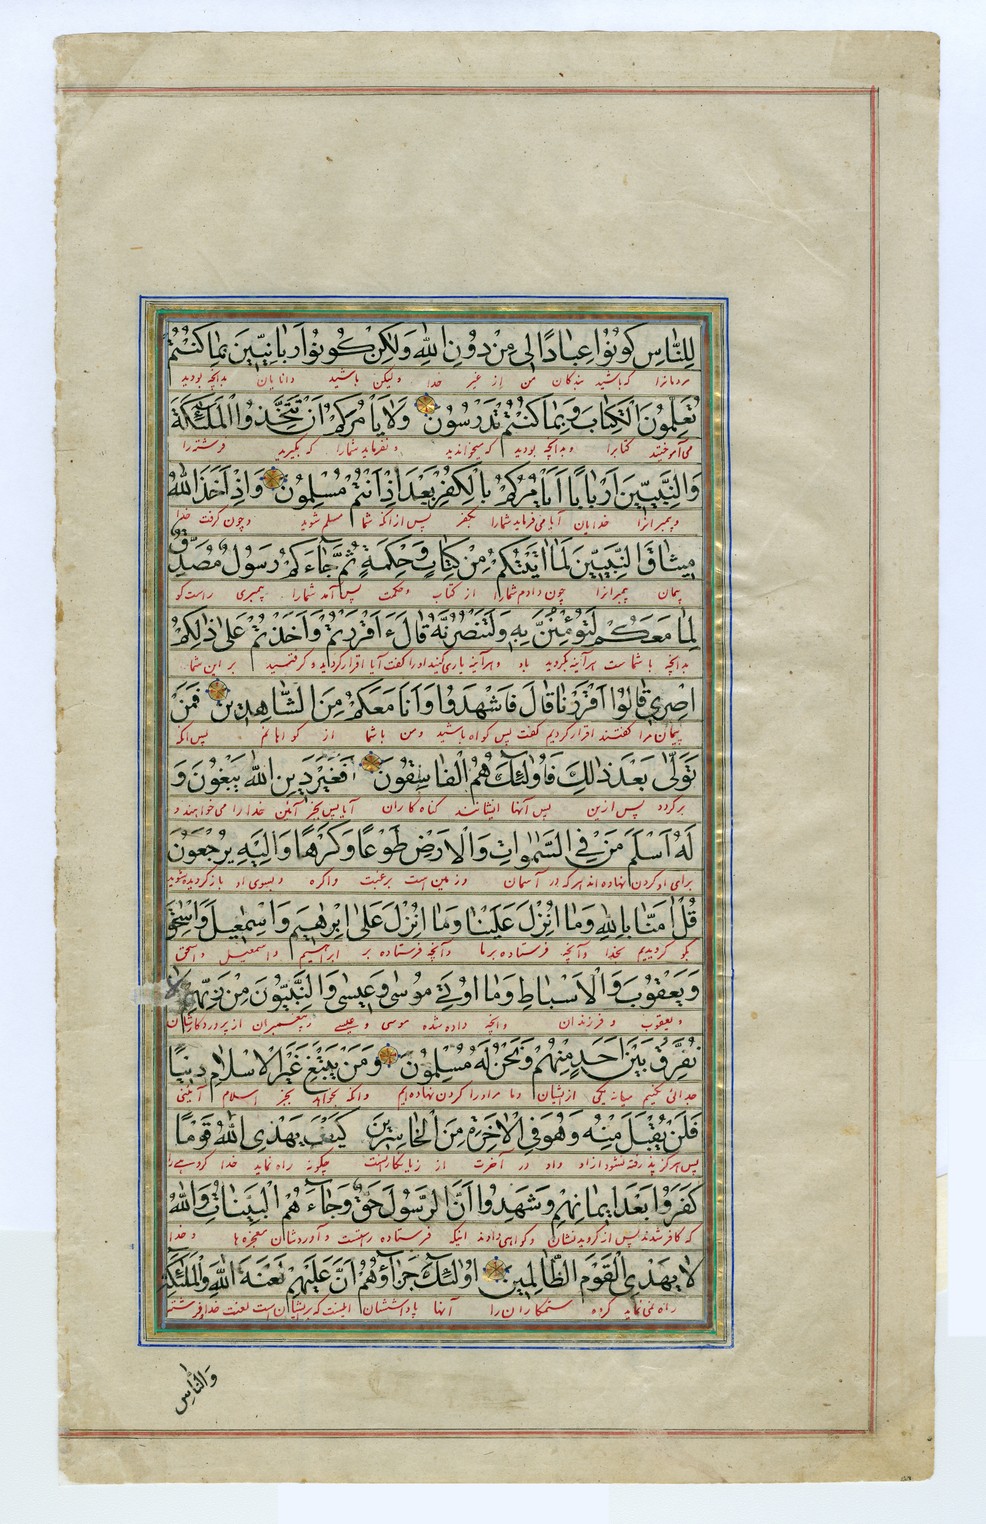 لِلنَّاسِ كُونُوا عِبَادًا لِى مِنْ دُونِ اللّٰهِ وَلٰكِنْ كُونُوا رَبَّانِيِّينَ بِمَا كُنْتُمْ
مردمانرا که باشید بندکان من از غیر خدا ولیکن باشید دانایان بدانچه بودید
تُعَلِّمُونَ الْكِتَابَ وَبِمَا كُنْتُمْ تَدْرُسُونَ وَلَا يَأْمُرَكُمْ اَنْ تَتَّخِذُوا الْمَلٰئِكَةَ
می‌آموختید کتابرا وبدانچه بودید که میخواندید ونفرماید شمارا که بگیرید فرشته‌را
وَالنَّبِيِّينَ اَرْبَابًا اَيَأْمُرُكُمْ بِالْكُفْرِ بَعْدَ اِذْ اَنْتُمْ مُسْلِمُونَ وَاِذْ اَخَذَ اللّٰهُ
وپیمبرانرا خدایان آیا می‌فرماید شمارا بکفر پس ازآنکه شما مسلم شوید وچون گرفت خدا
مِيثَاقَ النَّبِيِّينَ لَمَا اٰتَيْتُكُمْ مِنْ كِتَابٍ وَحِكْمَةٍ ثُمَّ جَاءَكُمْ رَسُولٌ مُصَدِّقٌ
پیمان پیمبرانرا چون دادم شمارا از کتاب وحکمت پس آمد شمارا پیمبری راست‌کو
لِمَا مَعَكُمْ لَتُؤْمِنُنَّ بِهِ وَلَتَنْصُرُنَّهُ قَالَ ءَاَقْرَرْتُمْ وَاَخَذْتُمْ عَلٰى ذٰلِكُمْ
بدانچه با شماست هرآینه بگروید باو وهرآینه یاری کنید اورا گفت آیا اقرار کردید و گرفتید بر این شما
اِصْرِى قَالُوا اَقْرَرْنَا قَالَ فَاشْهَدُوا وَاَنَا مَعَكُمْ مِنَ الشَّاهِدِينَ فَمَنْ
پیمان مرا گفتند اقرار کردیم گفت پس کواه باشید ومن باشما از کواهانم پس آنکه
تَوَلّٰى بَعْدَ ذٰلِكَ فَاُولٰئِكَ هُمُ الْفَاسِقُونَ اَفَغَيْرَ دِينِ اللّٰهِ يَبْغُونَ وَ
برگردد پس ازین پس آنها ایشانند گناه‌کاران آیا پس بجز آئین خدارا می‌خواهند و
لَهُ اَسْلَمَ مَنْ فِى السَّمٰوَاتِ وَالْاَرْضِ طَوْعًا وَكَرْهًا وَاِلَيْهِ يُرْجَعُونَ
برای او گردن نهاده‌اند هرکه در آسمان وزمین است برغبت واکره وبسوی او بازگردیده شوید
قُلْ اٰمَنَّا بِاللّٰهِ وَمَا اُنْزِلَ عَلَيْنَا وَمَا اُنْزِلَ عَلٰى اِبْرٰهِيمَ وَاِسْمٰعِيلَ وَاِسْحٰقَ
بگو گرویدیم بخدا وآنچه فرستاده برما وآنچه فرستاده بر ابراهیم واسمعیل واسحق
وَيَعْقُوبَ وَالْاَسْبَاطِ وَمَا اُوتِىَ مُوسٰى وَعِيسٰى وَالنَّبِيُّونَ مِنْ رَبِّهِمْ لَا
ویعقوب وفرزندان وانچه داده شده موسی وعیسی وپیغمبران از پروردکارشان
نُفَرِّقُ بَيْنَ اَحَدٍ مِنْهُمْ وَنَحْنُ لَهُ مُسْلِمُونَ وَمَنْ يَبْتَغِ غَيْرَ الْاِسْلَامِ دِينًا
جدائی نکنیم میانه یکی ازیشان وما مراورا گردن نهاده‌ایم وآنکه بخواهد بجز اسلام آئینی
فَلَنْ يُقْبَلَ مِنْهُ وَهُوَ فِى الْاٰخِرَةِ مِنَ الْخَاسِرِينَ كَيْفَ يَهْدِى اللّٰهُ قَوْمًا
پس هرگز پذرفته نشود ازاو واو در آخرت از زیانکارانست چگونه راه نماید خدا گروهی را
كَفَرُوا بَعْدَ اِيمَانِهِمْ وَشَهِدُوا اَنَّ الرَّسُولَ حَقٌّ وَجَاءَهُمُ الْبَيِّنَاتُ وَاللّٰهُ
که کافر شدند پس از گرویدنشان وکواهی دادند اینکه فرستاده راستست وآوردشان معجزه‌ها وخدا
لَا يَهْدِى الْقَوْمَ الظَّالِمِينَ اُولٰئِكَ جَزَاؤُهُمْ اَنَّ عَلَيْهِمْ لَعْنَةَ اللّٰهِ وَالْمَلٰئِكَةِ
راه نمی‌نماید گروه ستمکاران‌را آنها پاداششان اینست که بریشان است لعنت خدا وفرشته
وَالنَّاسِ